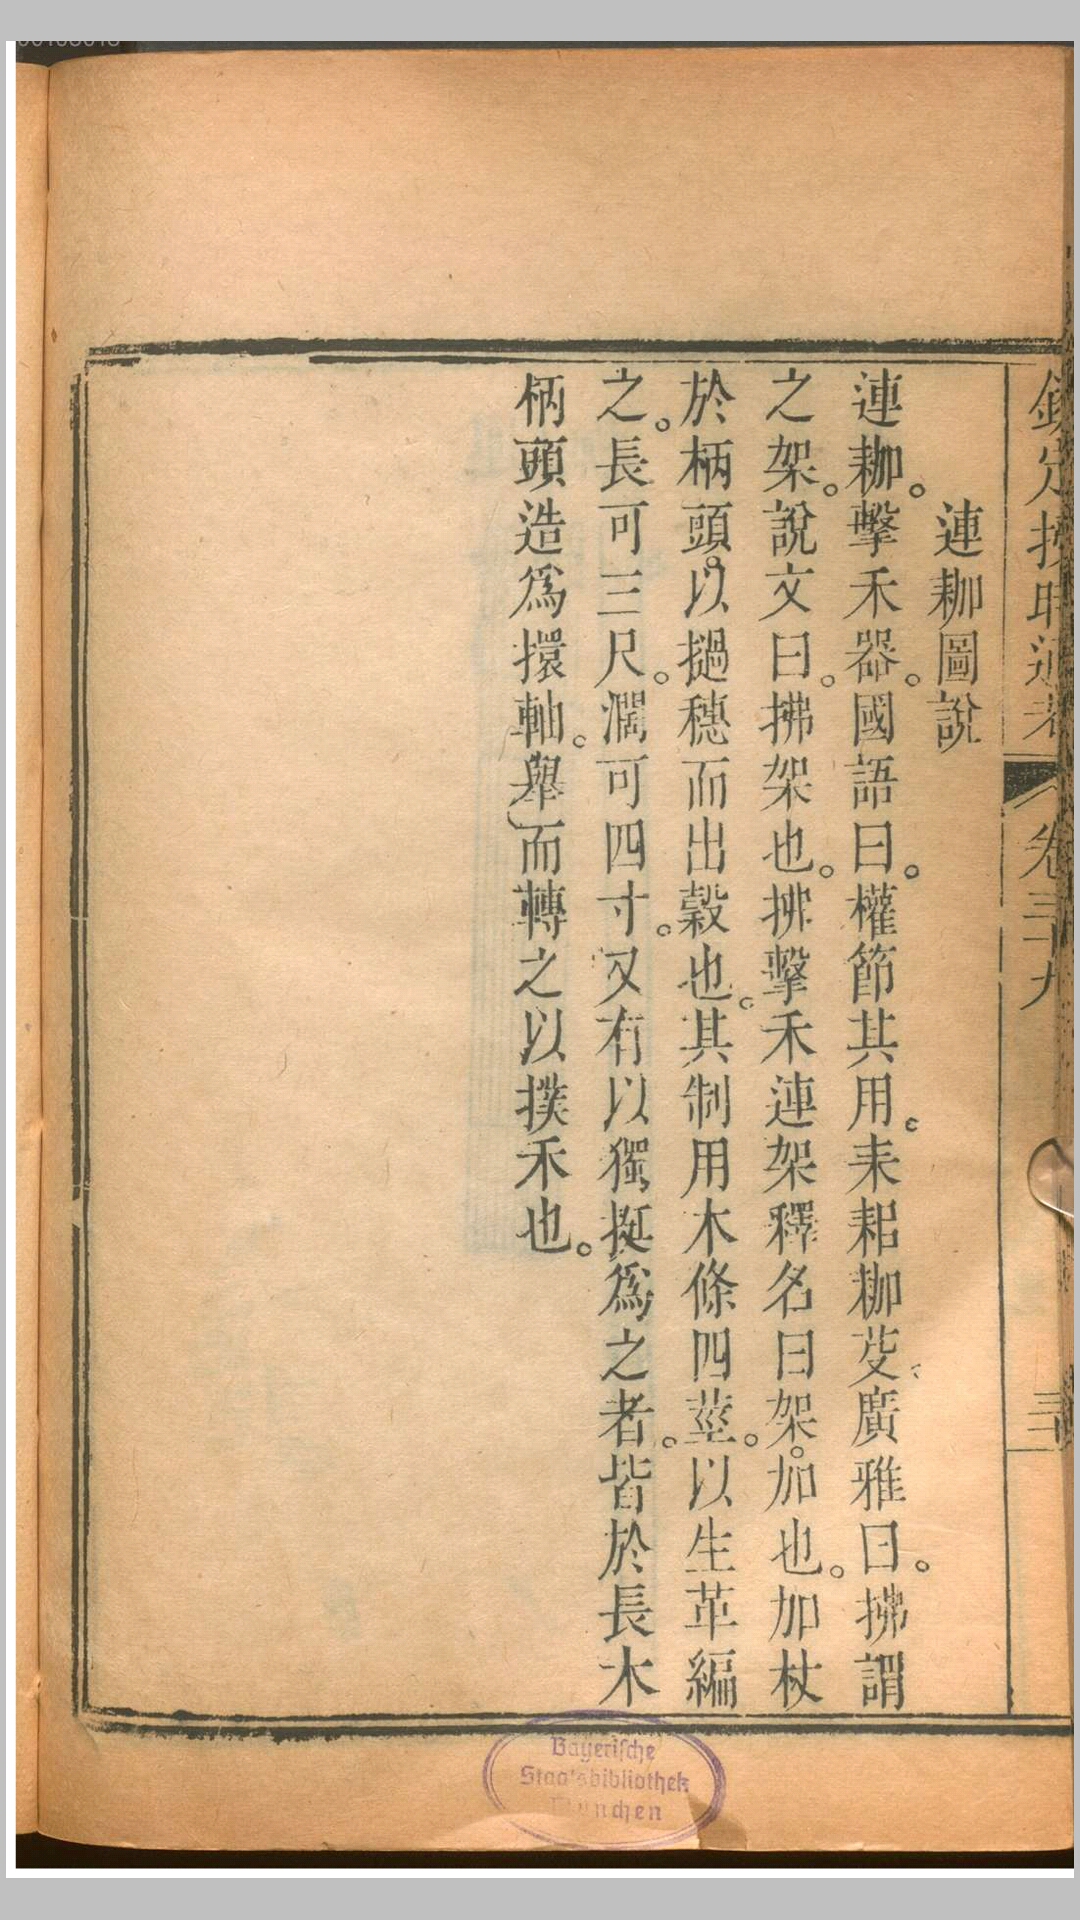 欽定授時通考
卷三十九
三
連耞圖說
連耞。擊禾器。國語曰。權節其用。耒耜枷芟。廣雅曰。拂謂
之架。說文曰。拂架也。拂擊禾連架釋名曰架。加也。加杖
於柄頭。以撾穗而出穀也。其制用木條四莖。以生革編
之。長可三尺。濶可四寸。又有以獨挺爲之者。皆於長木
柄頭造爲擐軸。舉而轉之以撲禾也。
Bayerische
Staatsbibliothek
München